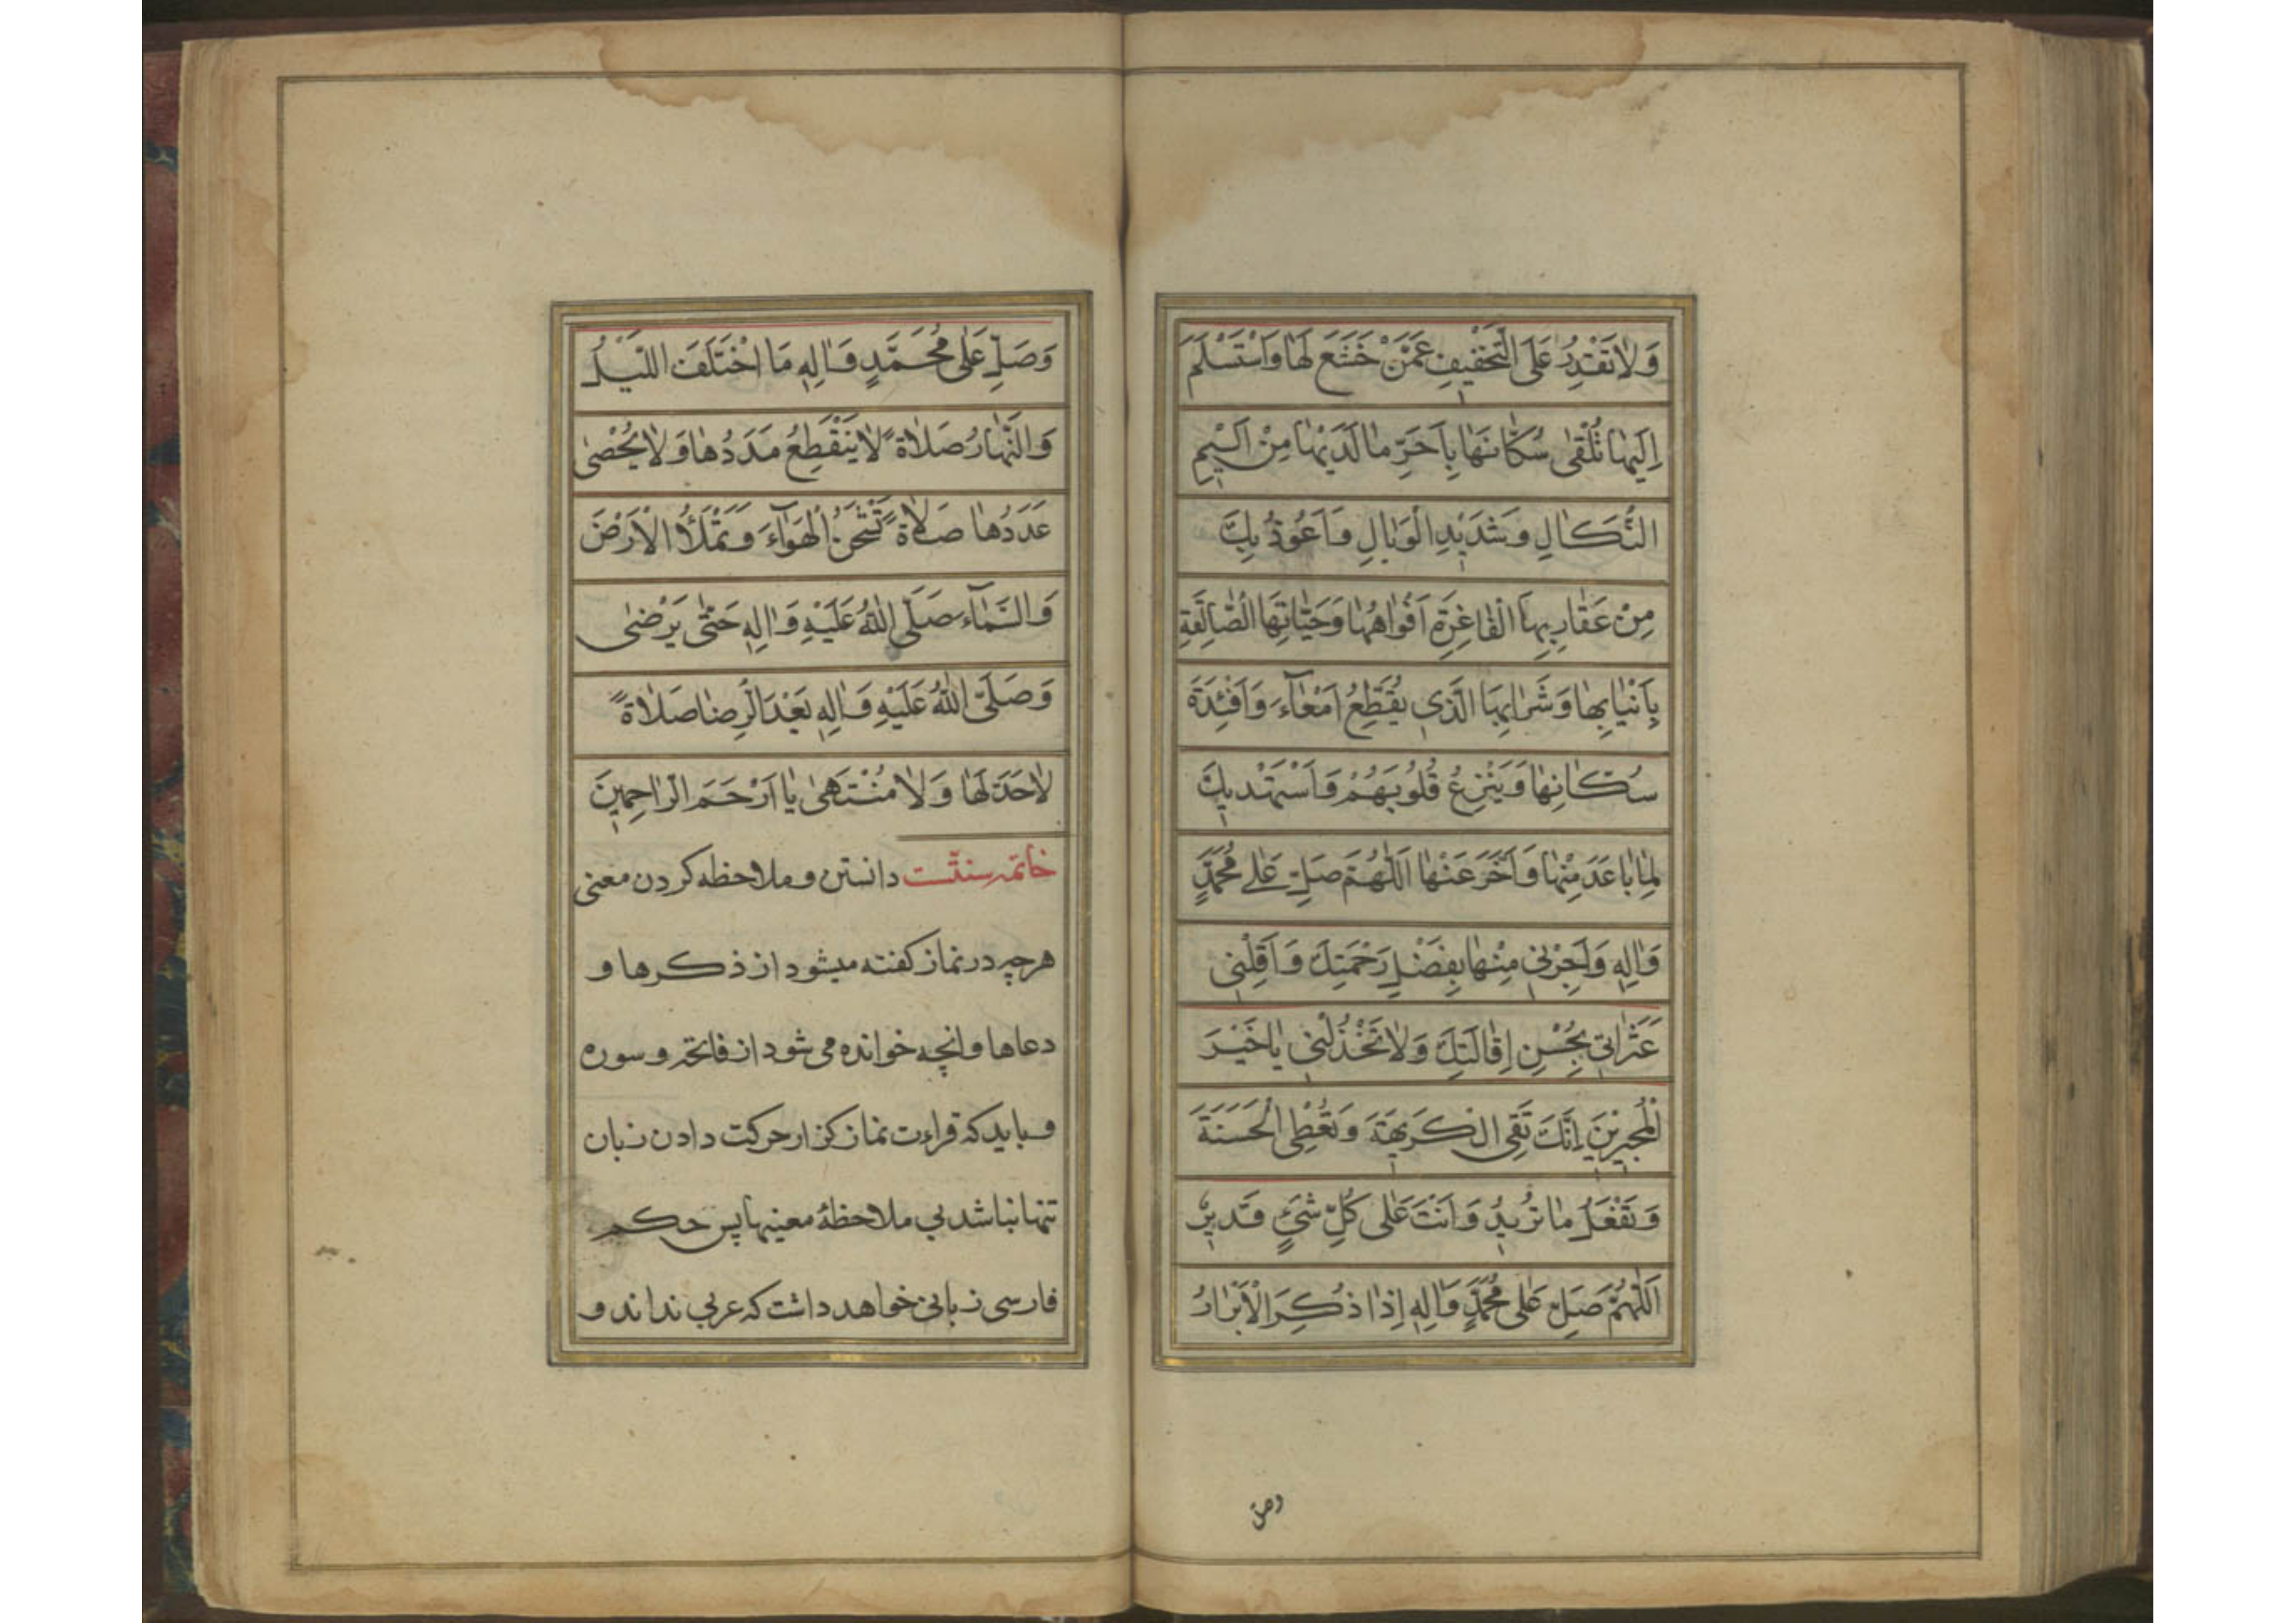 وَلَا تَقْدِرُ عَلَى التَّخْفِيفِ عَمَّنْ خَشَعَ لَهَا وَاسْتَسْلَمَ
اِلَيْهَا تُلْقٰى سُكّٰانَهَا بِاَحَرِّ مٰا لَدَيْهٰا مِنْ اَلِيمِ
النَّكٰالِ وَشَدِيدِ الْوَبٰالِ وَاَعُوذُ بِكَ
مِنْ عَقٰارِبِهَا الْفٰاغِرَةِ اَفْوٰاهُهٰا وَحَيّٰاتِهَا الصّٰالِقَةِ
بِاَنْيٰابِهٰا وَشَرٰابِهَا الَّذِي يُقَطِّعُ اَمْعٰآءَ وَاَفْئِدَةَ
سُكّٰانِهٰا وَيَنْزِعُ قُلُوبَهُمْ وَاَسْتَهْدِيكَ
لِمٰا بٰاعَدَ مِنْهٰا وَاَخَّرَ عَنْهٰا اَللّٰهُمَّ صَلِّ عَلٰى مُحَمَّدٍ
وَاٰلِهِ وَاَجِرْنِي مِنْهٰا بِفَضْلِ رَحْمَتِكَ وَاَقِلْنِي
عَثَرٰاتِي بِحُسْنِ اِقٰالَتِكَ وَلٰا تَخْذُلْنِي يٰا خَيْرَ
الْمُجِيرِينَ اِنَّكَ تَقِي الْكَرِيهَةَ وَتُعْطِي الْحَسَنَةَ
وَتَفْعَلُ مٰا تُرِيدُ وَاَنْتَ عَلٰى كُلِّ شَيْءٍ قَدِيرٌ
اَللّٰهُمَّ صَلِّ عَلٰى مُحَمَّدٍ وَاٰلِهِ اِذٰا ذُكِرَ الْاَبْرٰارُ
وصل
وَصَلِّ عَلٰى مُحَمَّدٍ وَاٰلِهِ مَا اخْتَلَفَ اللَّيْلُ
وَالنَّهٰارُ صَلٰاةً لٰا يَنْقَطِعُ مَدَدُهٰا وَلٰا يُحْصٰى
عَدَدُهٰا صَلٰاةً تَشْحَنُ الْهَوٰآءَ وَتَمْلَأُ الْاَرْضَ
وَالسَّمٰآءَ صَلَّى اللّٰهُ عَلَيْهِ وَاٰلِهِ حَتّٰى يَرْضٰى
وَصَلَّى اللّٰهُ عَلَيْهِ وَاٰلِهِ بَعْدَ الرِّضٰا صَلٰاةً
لٰا حَدَّ لَهٰا وَلٰا مُنْتَهٰى يٰا اَرْحَمَ الرّٰاحِمِينَ
خاتمه سنتست دانستن و ملاحظه کردن معنی
هرچه در نماز کفته میشود از ذکرها و
دعاها و انچه خوانده می شود از فاتحه و سوره
و باید که قراءت نماز کزار حرکت دادن زبان
تنها نباشد بی ملاحظهٔ معنیها پس حکم
فارسی زبانی خواهد داشت که عربی نداند و